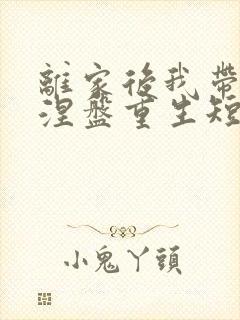 離家後我帶
涅盤重生短
小鬼丫頭